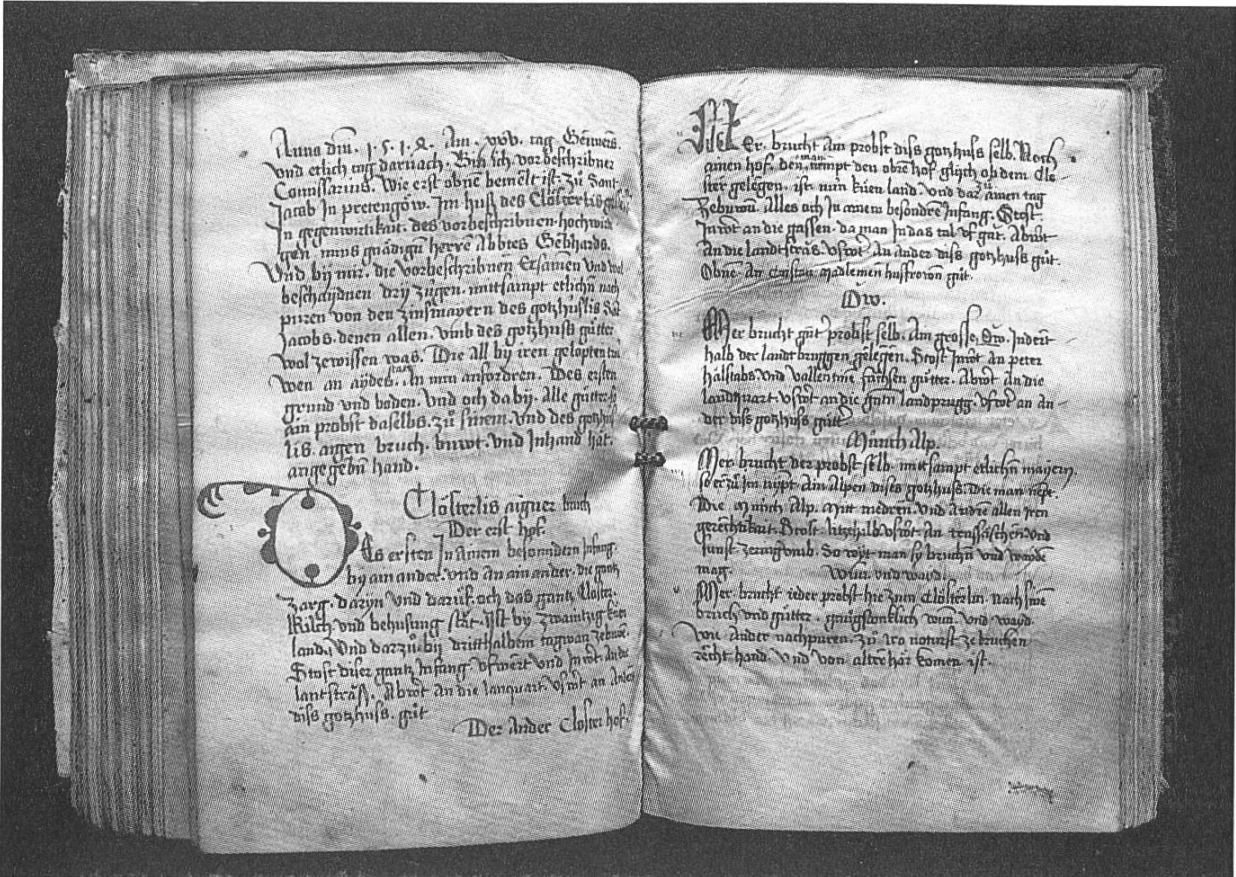 Anna dm̄. 1.5.1.2. Am. xxv. tag Genners.
vnd etlich tag darnach. Bin ich vorbeschribner
Comissarius. wie erst obne bemelt ist. Zů Sant
Jacob In pretengöw. Im huss des Clösterlis
In gegenwirtikait. des vorbeschribnen hochwir
gen. mins gnädigen herrē Abbtes Gebhards.
Vnd bij mir. die vorbeschribnen Ersamen vnd wol
beschaydnen drij zügen. mittsampt etlichn̄ nach
puren von den zinssmayern des gotzhuslis Sät
Jacobs. denen allen. vmb des gotzhuss gütter
wol zewissen was. Die all by iren gelopten trü
wen an aydes statt. An min anfordren. Des ersten
grund vnd boden. vnd och da by. Alle gütter. so
ain probst daselbs. zů sinem. vnd des gotzhus
lis. aigen bruch. buwt. vnd Inhand hăt.
angegebn̄ hand.
Clösterlis aigner buch
Der erst hof.
Des ersten In Ainem besonndern Infang.
by ain ander. vnd An ain ander. die gantz
zarg. daryn vnd daruf. och das gantz Closter.
Kilch vnd behusung stăt. Ist by zwaintzig küen
land. Vnd darzů. bij dritthalbem tagwan zebuwē.
Stost diser gantz Infang. vfwert vnd Inwt. An die
lantsträss. Abwt An die lanquart. vswt an Ander
diss gotzhuss. gůt
Der Ander Closter hof.
Mer. brucht Ain probst diss gotzhuss selb. Noch
ainen hof. den man nempt den obrē hof glijch ob dem Clo
ster gelegen. ist. nün küen land. vnd dar zů ainen tag
Zebuwn̄. Alles och In ainem besondrē Infang. Stost.
Inwt an die gassen. da man In das tal vf găt. Abwt
An die landtsträs. vswt. An ander diss gotzhuss gůt.
Obnē. An Cristan madlemen hussfrowen gůt.
Ow.
Mer brucht gůt probst selb. Am grosse. Ow. Indert
halb der landt bruggen gelegen. Stost Inwt An peter
hälstabs. vnd vallentine fluschsen gütter. Abwt An die
landquart. vswt an die gmein landprugg. vfwt an An
der diss gotzhuss gůtt
Münch Alp.
Mer brucht der probst selb. mittsampt etlichn̄ maijern.
so er zů Im nÿpt Ain Alpen dises gotzhuss. Die man nēpt.
Die Münch Alp. Mitt medren. vnd An die allen Iren
gerechtikait. Stost. vsswt An
sunst. zeringvmb. So wijt man sy bruchn̄ vnd wayde
mag. Wun vnd wayd.
Mer. brucht ieder probst hie zum Clösterlin. nach sinē
bruch vnd gütter. wun. vnd wayd.
wie Ander nachpuren. zů ira noturft ze bruchen
recht hand. vnd von altem här komen ist.